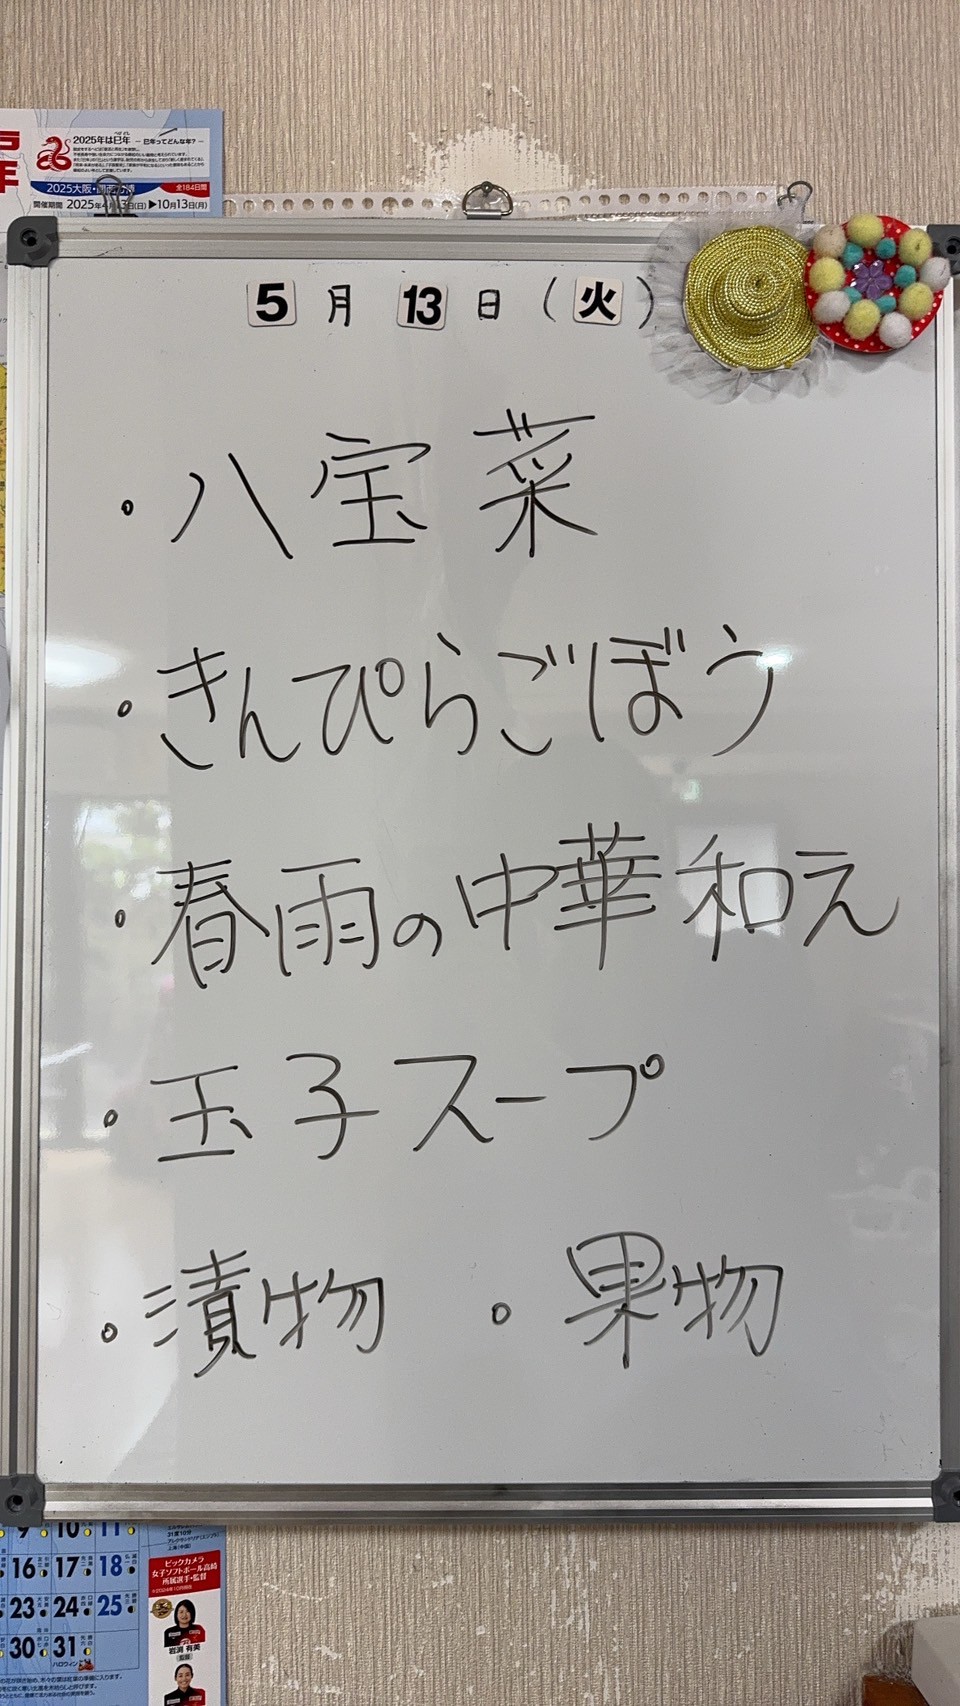 2025年は巳年 ― 巳年ってどんな年? ―
2025大阪・関西万博
全184日間
開催期間 2025年4月13日(日)▶10月13日(月)
5月13日(火)
・八宝菜
・きんぴらごぼう
・春雨の中華和え
・玉子スープ
・漬物 ・果物
9 10 11
16 17 18
23 24 25
30 31
ハロウィン
ビックカメラ
女子ソフトボール高崎
所属選手・監督
岩渕 有美
監督